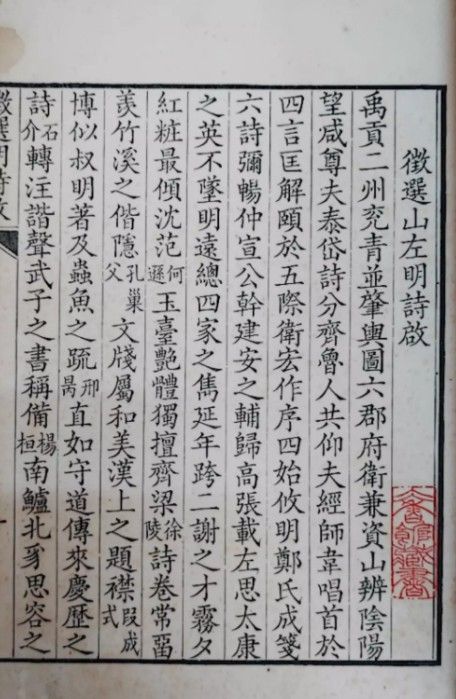 徵選山左明詩啟
禹貢二州兖青並肇輿圖六郡府衛兼資山辨陰陽
望咸尊夫泰岱詩分齊魯人共仰夫經師韋唱首於
四言匡解頤於五際衛宏作序四始攸明鄭氏成箋
六詩彌暢仲宣公幹建安之輔歸高張載左思太康
之英不墜明遠總四家之雋延年跨二謝之才霧夕
紅粧最傾沈范何遜玉臺艷體獨擅齊梁徐陵詩卷常畱
羨竹溪之偕隱孔巢父文牋屬和美漢上之題襟段成式
博似叔明著及蟲魚之疏邢昺直如守道傳來慶歷之
詩石介轉汪諧聲武子之書稱備楊桓南鱸北豸思容之
徵選明詩啟